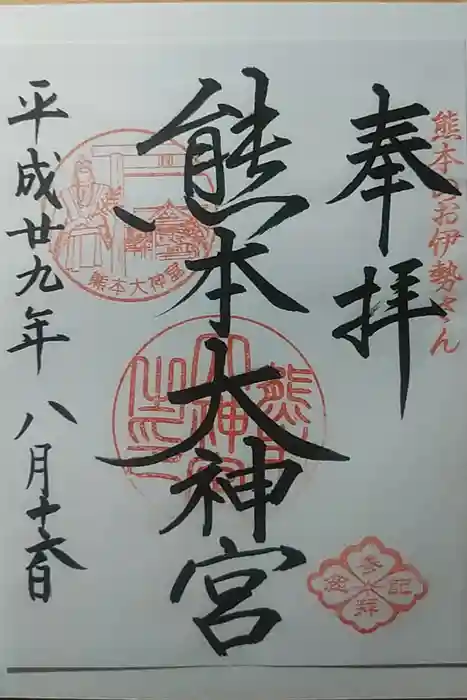 熊本のお伊勢さん
奉拝
熊本大神宮
平成廿九年 八月十六日
熊本大神宮
参拝記念